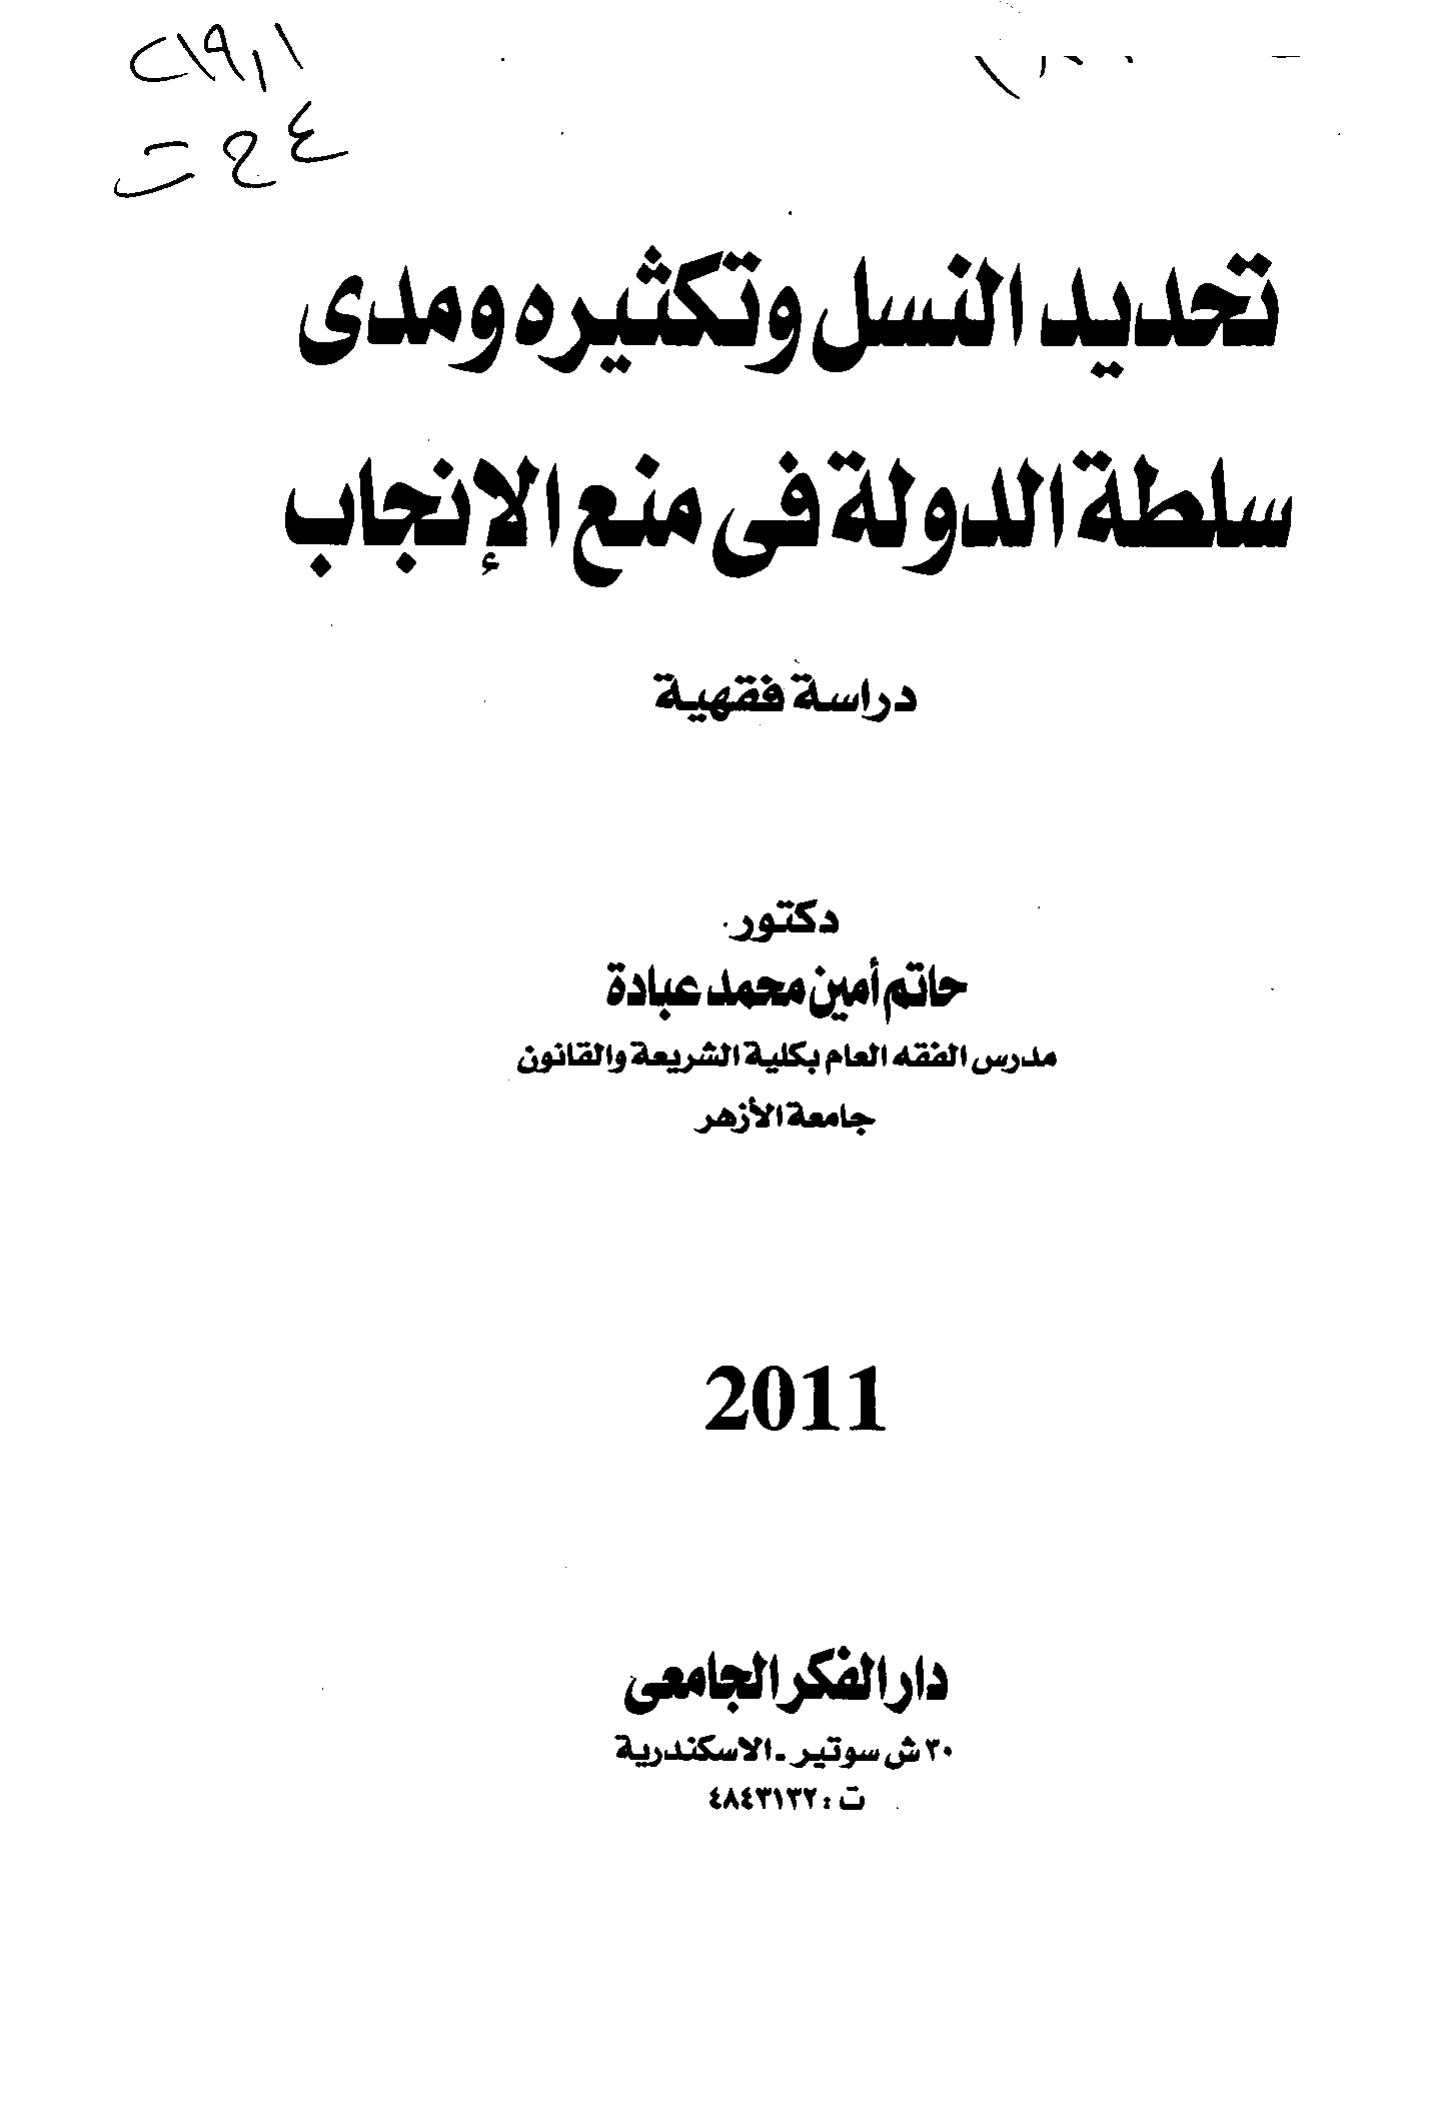 ٢١٩٫١
ع ح ت
تحديد النسل وتكثيره ومدى
سلطة الدولة فى منع الإنجاب
دراسة فقهية
دكتور
حاتم أمين محمد عبادة
مدرس الفقه العام بكلية الشريعة والقانون
جامعة الأزهر
2011
دار الفكر الجامعى
٣٠ ش سوتير - الاسكندرية
ت : ٤٨٤٣١٣٢